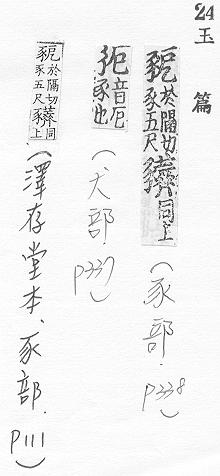 24 玉篇
豟 於隔切豕五尺 同上 (豕部. P338)
音厄豕也 (犬部. P337)
豟 於隔切豕五尺 同上 (澤存堂本.豕部. P111)